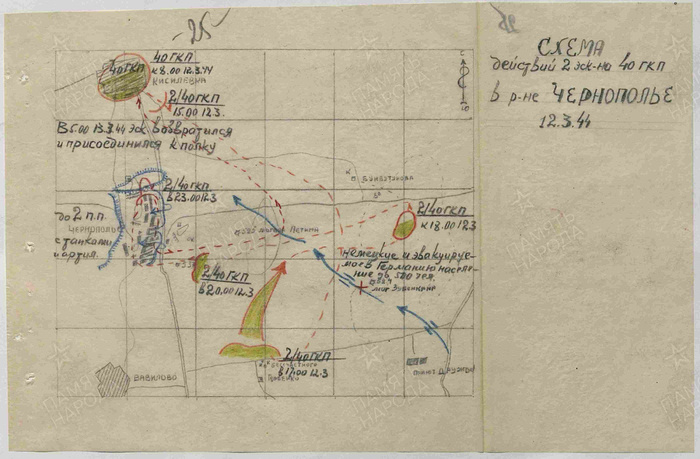 25
СХЕМА
действий 2 эск-на 40 гкп
в р-не ЧЕРНОПОЛЬЕ
12.3.44
40 ГКП
40 ГКП
к 8.00 12.3.44
КИСИЛЕВКА
2/40 ГКП
15.00 12.3.
В 5.00 13.3.44 эск. возвратился
и присоединился к полку
2/40 ГКП
в 23.00 12.3
до 2 п.п.
ЧЕРНОПОЛЬЕ
с танками
и артил.
2/40 ГКП
к 18.00 12.3
2/40 ГКП
в 20.00 12.3
немецкие и эвакуируе-
мое в Германию населе-
ние до 500 чел.
2/40 ГКП
в 17.00 12.3
ВАВИЛОВО